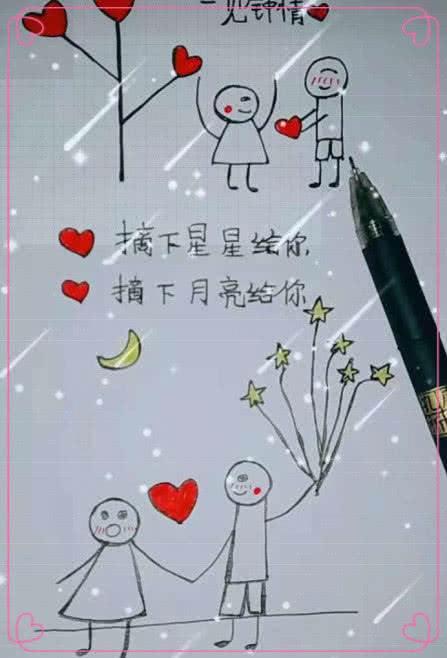 一见钟情
摘下星星给你
摘下月亮给你